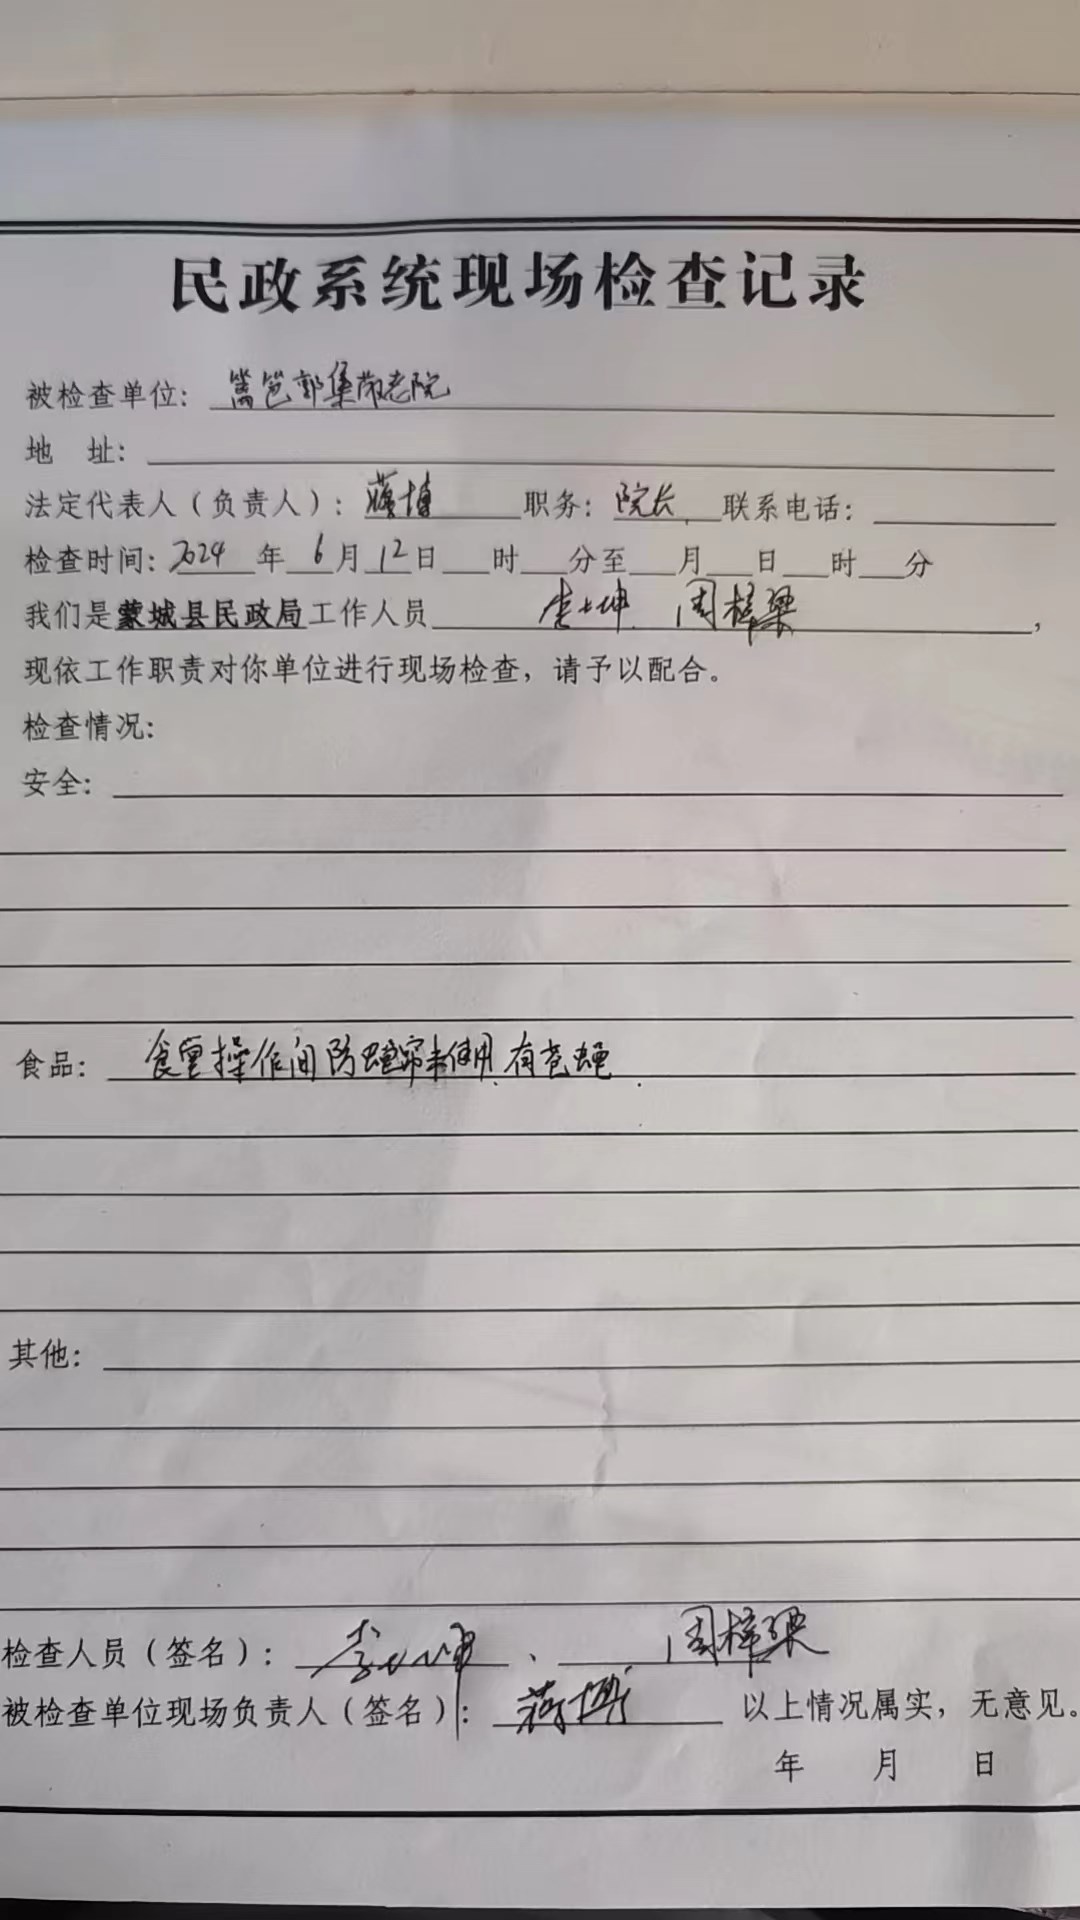 民政系统现场检查记录
被检查单位：篱笆郭集敬老院
地　址：
法定代表人（负责人）：蒋博 职务：院长 联系电话：
检查时间：2024年6月12日 时 分至 月 日 时 分
我们是蒙城县民政局工作人员 李士坤 周梓梁，
现依工作职责对你单位进行现场检查，请予以配合。
检查情况：
安全：
食品：食堂操作间防蝇帘未使用，有苍蝇．
其他：
检查人员（签名）：李士坤、周梓梁
被检查单位现场负责人（签名）：蒋博 以上情况属实，无意见。
年　月　日